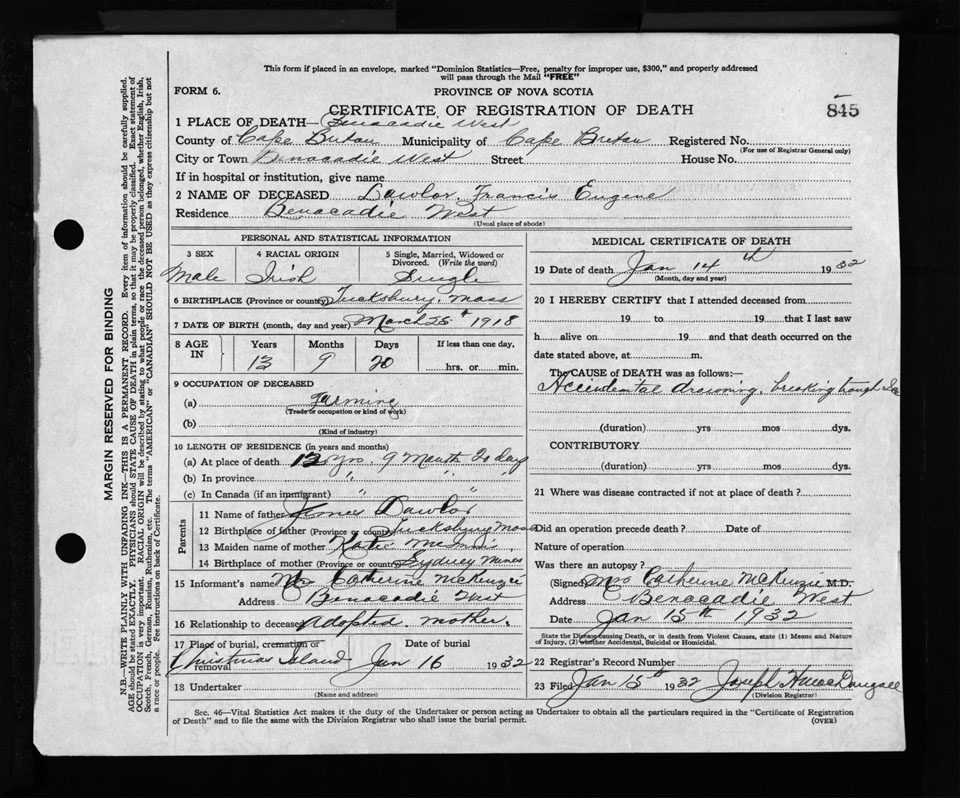 This form if placed in an envelope, marked "Dominion Statistics—Free, penalty for improper use, $300," and properly addressed
will pass through the Mail "FREE"
FORM 6.
PROVINCE OF NOVA SCOTIA
CERTIFICATE OF REGISTRATION OF DEATH
845
1 PLACE OF DEATH— Benacadie West
County of Cape Breton Municipality of Cape Breton Registered No.
(For use of Registrar General only)
City or Town Benacadie West Street House No.
If in hospital or institution, give name
2 NAME OF DECEASED Lawlor, Francis Eugene
Residence Benacadie West
(Usual place of abode)
PERSONAL AND STATISTICAL INFORMATION
3 SEX 4 RACIAL ORIGIN 5 Single, Married, Widowed or
Divorced. (Write the word)
Male Irish Single
6 BIRTHPLACE (Province or country) Tucksbury, Mass
7 DATE OF BIRTH (month, day and year) March 25th 1918
8 AGE
IN
Years Months Days If less than one day,
13 9 20 hrs. or min.
9 OCCUPATION OF DECEASED
(a) Farming
(Trade or occupation or kind of work)
(b)
(Kind of industry)
10 LENGTH OF RESIDENCE (in years and months)
(a) At place of death 12 yrs. 9 Month 20 day
(b) In province " " "
(c) In Canada (if an immigrant) " "
Parents
11 Name of father James Lawlor
12 Birthplace of father (Province or country) Tucksbury Mass
13 Maiden name of mother Katie
14 Birthplace of mother (Province or country) Sydney Mines
15 Informant's name Mrs Catherine McKenzie
Address Benacadie West
16 Relationship to deceased Adopted mother.
17 Place of burial, cremation or
removal
Date of burial
Christmas Island Jan 16 1932
18 Undertaker
(Name and address)
MEDICAL CERTIFICATE OF DEATH
19 Date of death Jan 14th 1932
(Month, day and year)
20 I HEREBY CERTIFY that I attended deceased from
19 to 19 that I last saw
h alive on 19 and that death occurred on the
date stated above, at m.
The CAUSE of DEATH was as follows:—
Accidental drowning, breaking trough Ice
(duration) yrs mos dys.
CONTRIBUTORY
(duration) yrs. mos. dys.
21 Where was disease contracted if not at place of death?
Did an operation precede death? Date of
Nature of operation
Was there an autopsy?
(Signed) Mrs Catherine McKenzie M.D.
Address Benacadie West
Date Jan 15th 1932
State the Disease causing Death, or in death from Violent Causes, state (1) Means and Nature
of Injury, (2) whether Accidental, Suicidal or Homicidal.
22 Registrar's Record Number
23 Filed Jan 15th 1932 Joseph H MacDougall
(Division Registrar)
Sec. 46—Vital Statistics Act makes it the duty of the Undertaker or person acting as Undertaker to obtain all the particulars required in the "Certificate of Registration
of Death" and to file the same with the Division Registrar who shall issue the burial permit.
(OVER)
MARGIN RESERVED FOR BINDING
N.B.—WRITE PLAINLY WITH UNFADING INK—THIS IS A PERMANENT RECORD. Every item of information should be carefully supplied.
AGE should be stated EXACTLY. PHYSICIANS should STATE CAUSE OF DEATH in plain terms, so that it may be properly classified. Exact statement of
OCCUPATION is very important. RACIAL ORIGIN will be described by stating to what people or race the deceased person belonged, whether English, Irish,
Scotch, French, German, Russian, Ruthenian, etc. The terms "AMERICAN" or "CANADIAN" SHOULD NOT BE USED as they express citizenship but not
a race or people. See instructions on back of Certificate.